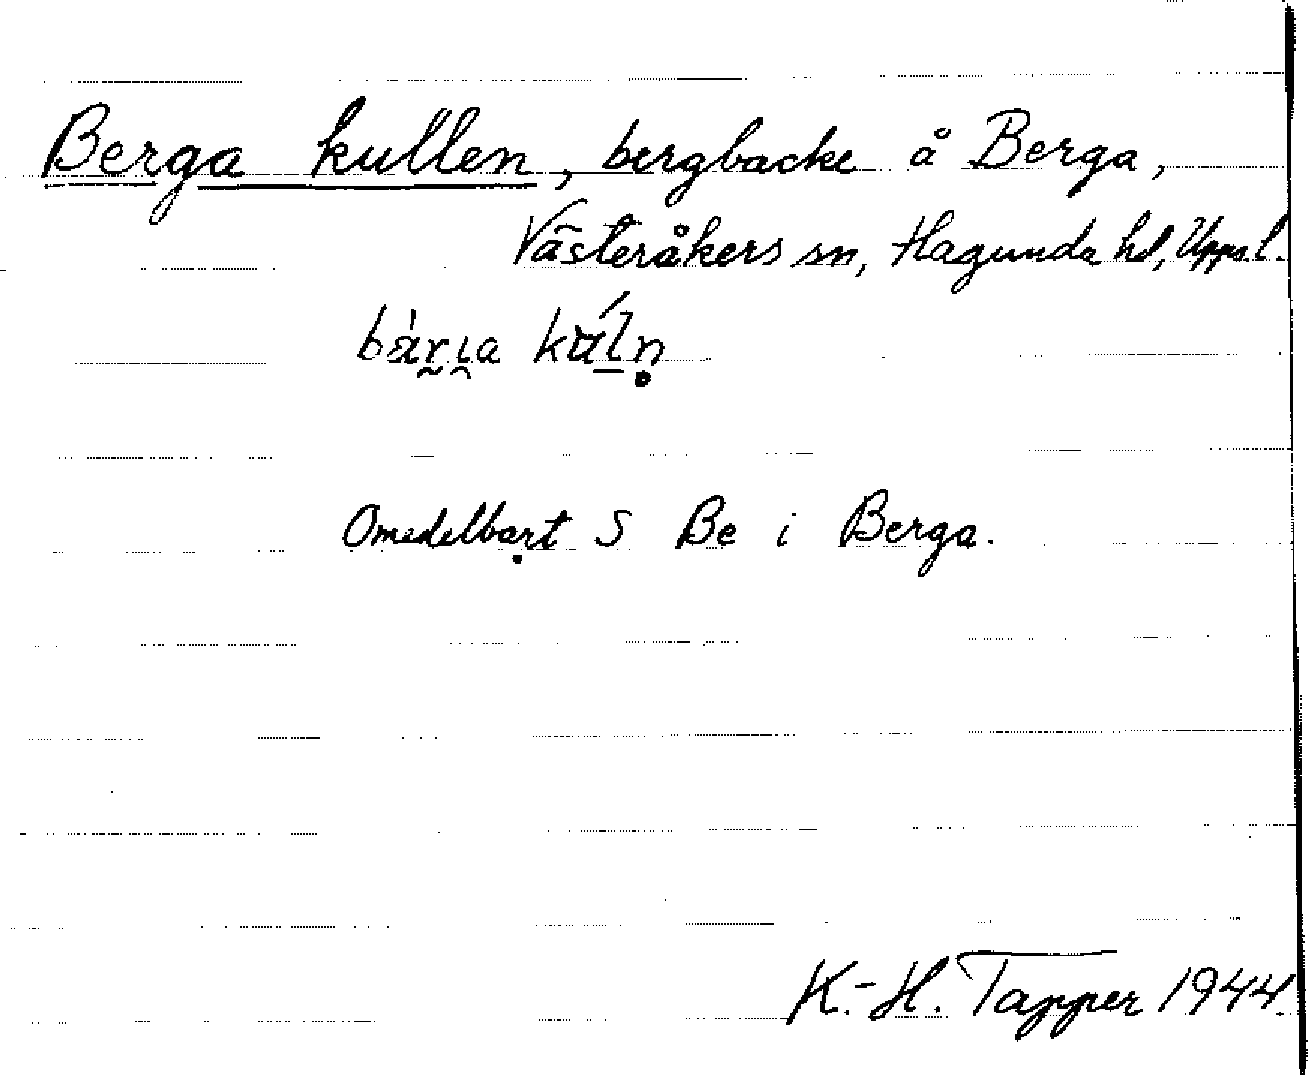 Berga kullen, bergbacke å Berga,
Västeråkers sn, Hagunda hd, Upps. l.
Omedelbart S Be i Berga.
K.-H. Tapper 1944.